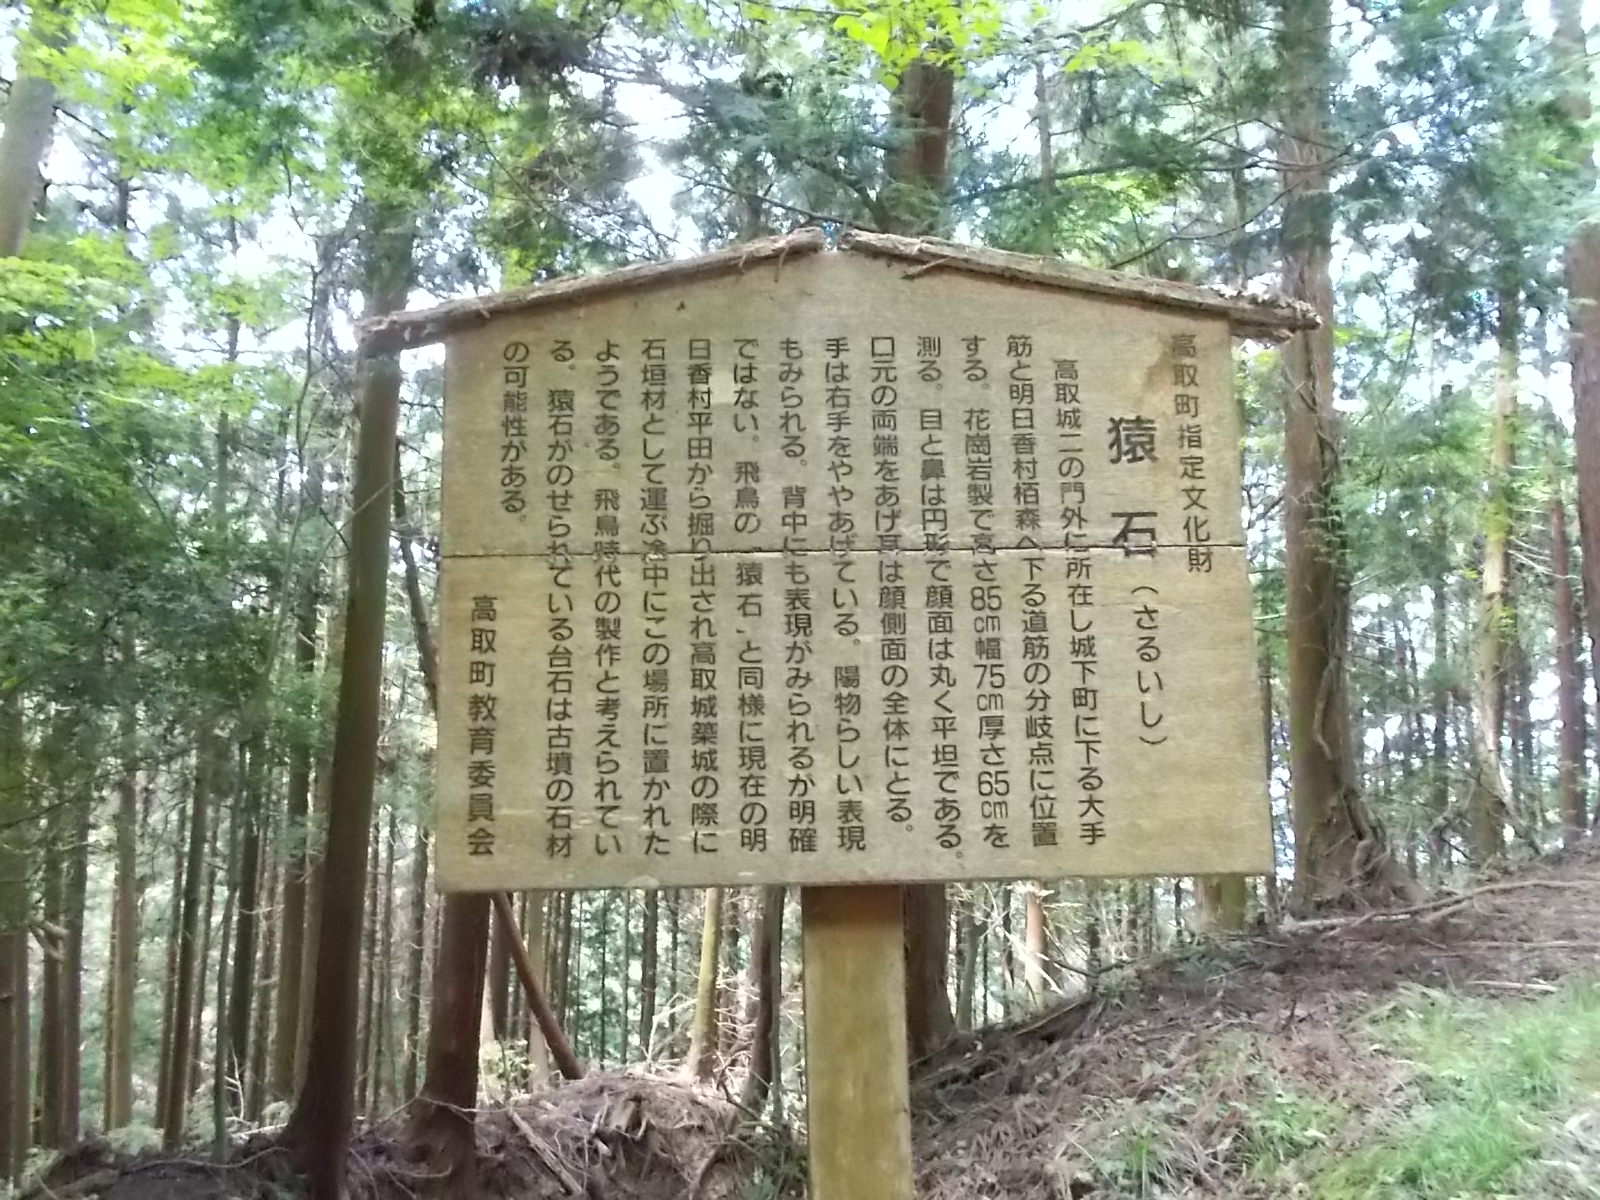 高取町指定文化財
猿石（さるいし）
高取城二の門外に所在し城下町に下る大手
筋と明日香村栢森へ下る道筋の分岐点に位置
する。花崗岩製で高さ85㎝幅75㎝厚さ65㎝を
測る。目と鼻は円形で顔面は丸く平坦である。
口元の両端をあげ耳は顔側面の全体にとる。
手は右手をややあげている。陽物らしい表現
もみられる。背中にも表現がみられるか明確
ではない。飛鳥の「猿石」と同様に現在の明
日香村平田から掘り出され高取城築城の際に
石垣材として運ぶ途中にこの場所に置かれた
ようである。飛鳥時代の製作と考えられてい
る。猿石がのせられている台石は古墳の石材
の可能性がある。
高取町教育委員会